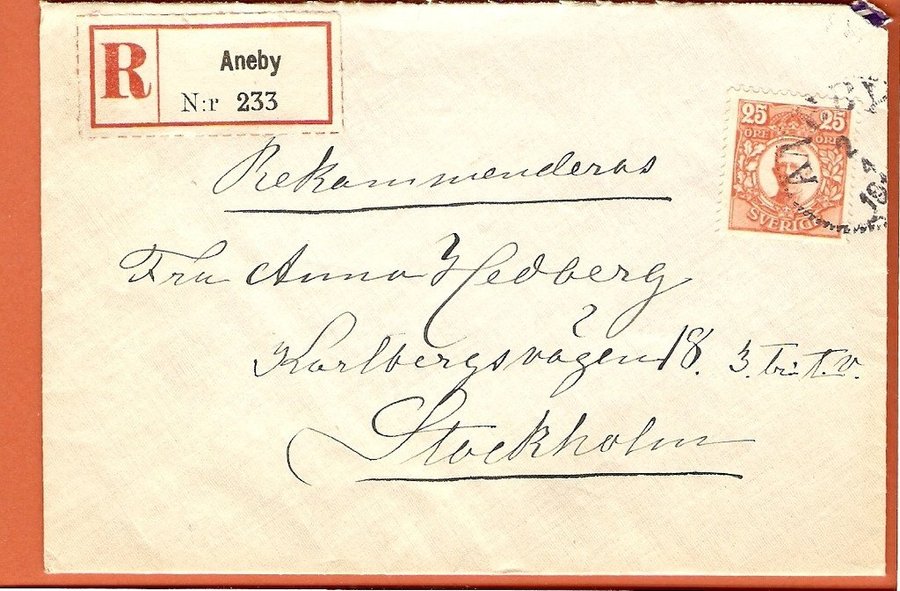 R
Aneby
N:r 233
Rekommenderas
Fru Anna Hedberg
Karlbergsvägen 18. 3. tr. t. v.
Stockholm
25 25
ÖRE ÖRE
SVERIGE
ANEBY
2